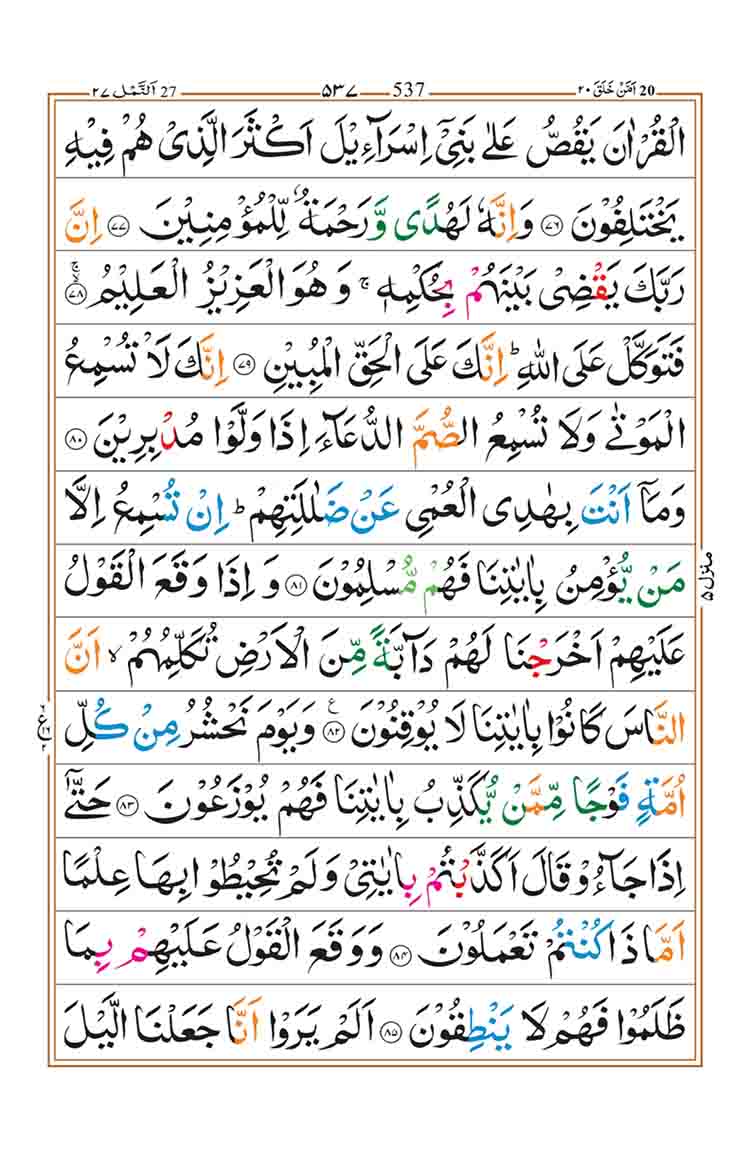 ٢٧ اَلنَّمْل 27 ٥٣٧ 537 ٢٠ اَمَّنْ خَلَقَ 20
الْقُرْاٰنَ يَقُصُّ عَلٰى بَنِىْٓ اِسْرَآءِيْلَ اَكْثَرَ الَّذِىْ هُمْ فِيْهِ
يَخْتَلِفُوْنَ ۝٧٦ وَاِنَّهٗ لَهُدًى وَّرَحْمَةٌ لِّلْمُؤْمِنِيْنَ ۝٧٧ اِنَّ
رَبَّكَ يَقْضِىْ بَيْنَهُمْ بِحُكْمِهٖ ۚ وَهُوَ الْعَزِيْزُ الْعَلِيْمُ ۝٧٨ۙۚ
فَتَوَكَّلْ عَلَى اللّٰهِ ؕ اِنَّكَ عَلَى الْحَقِّ الْمُبِيْنِ ۝٧٩ اِنَّكَ لَا تُسْمِعُ
الْمَوْتٰى وَلَا تُسْمِعُ الصُّمَّ الدُّعَآءَ اِذَا وَلَّوْا مُدْبِرِيْنَ ۝٨٠
وَمَاۤ اَنْتَ بِهٰدِى الْعُمْىِ عَنْ ضَلٰلَتِهِمْ ؕ اِنْ تُسْمِعُ اِلَّا
مَنْ يُّؤْمِنُ بِاٰيٰتِنَا فَهُمْ مُّسْلِمُوْنَ ۝٨١ وَ اِذَا وَقَعَ الْقَوْلُ
عَلَيْهِمْ اَخْرَجْنَا لَهُمْ دَآبَّةً مِّنَ الْاَرْضِ تُكَلِّمُهُمْ ۙ اَنَّ
النَّاسَ كَانُوْا بِاٰيٰتِنَا لَا يُوْقِنُوْنَ ۝٨٢ع وَيَوْمَ نَحْشُرُ مِنْ كُلِّ
اُمَّةٍ فَوْجًا مِّمَّنْ يُّكَذِّبُ بِاٰيٰتِنَا فَهُمْ يُوْزَعُوْنَ ۝٨٣ حَتّٰىٓ
اِذَا جَآءُوْ قَالَ اَكَذَّبْتُمْ بِاٰيٰتِىْ وَلَمْ تُحِيْطُوْا بِهَا عِلْمًا
اَمَّا ذَا كُنْتُمْ تَعْمَلُوْنَ ۝٨٤ وَوَقَعَ الْقَوْلُ عَلَيْهِمْ بِمَا
ظَلَمُوْا فَهُمْ لَا يَنْطِقُوْنَ ۝٨٥ اَلَمْ يَرَوْا اَنَّا جَعَلْنَا الَّيْلَ
منزل ٥